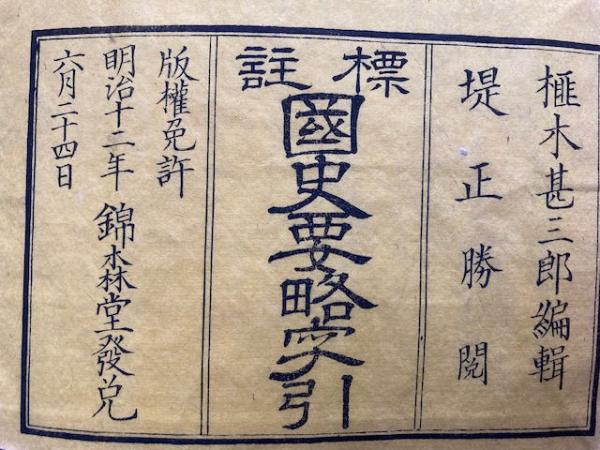 榧木甚三郎編輯
堤正勝閲
標註
國史要略字引
版權免許
明治十二年
六月二十四日
錦森堂發兌